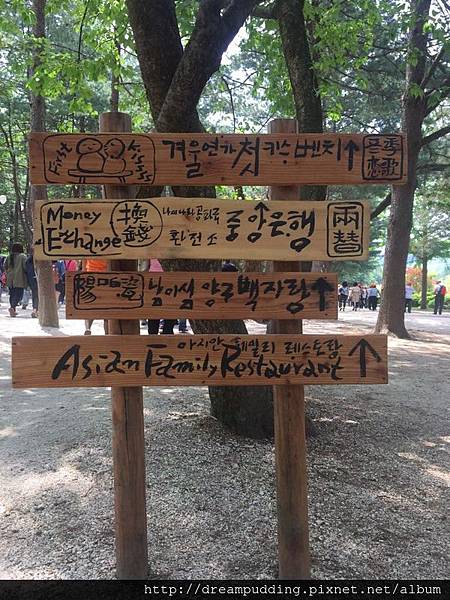 First Kiss 겨울연가 첫키스 벤치 ↑ 冬季恋歌
Money Exchange 換錢 나미나라공화국 환전소 중앙은행 ↑ 両替
남이섬 양주백자랑 ↑
아시안 패밀리 레스토랑
Asian Family Restaurant ↑
http://dreampudding.pixnet.net/album